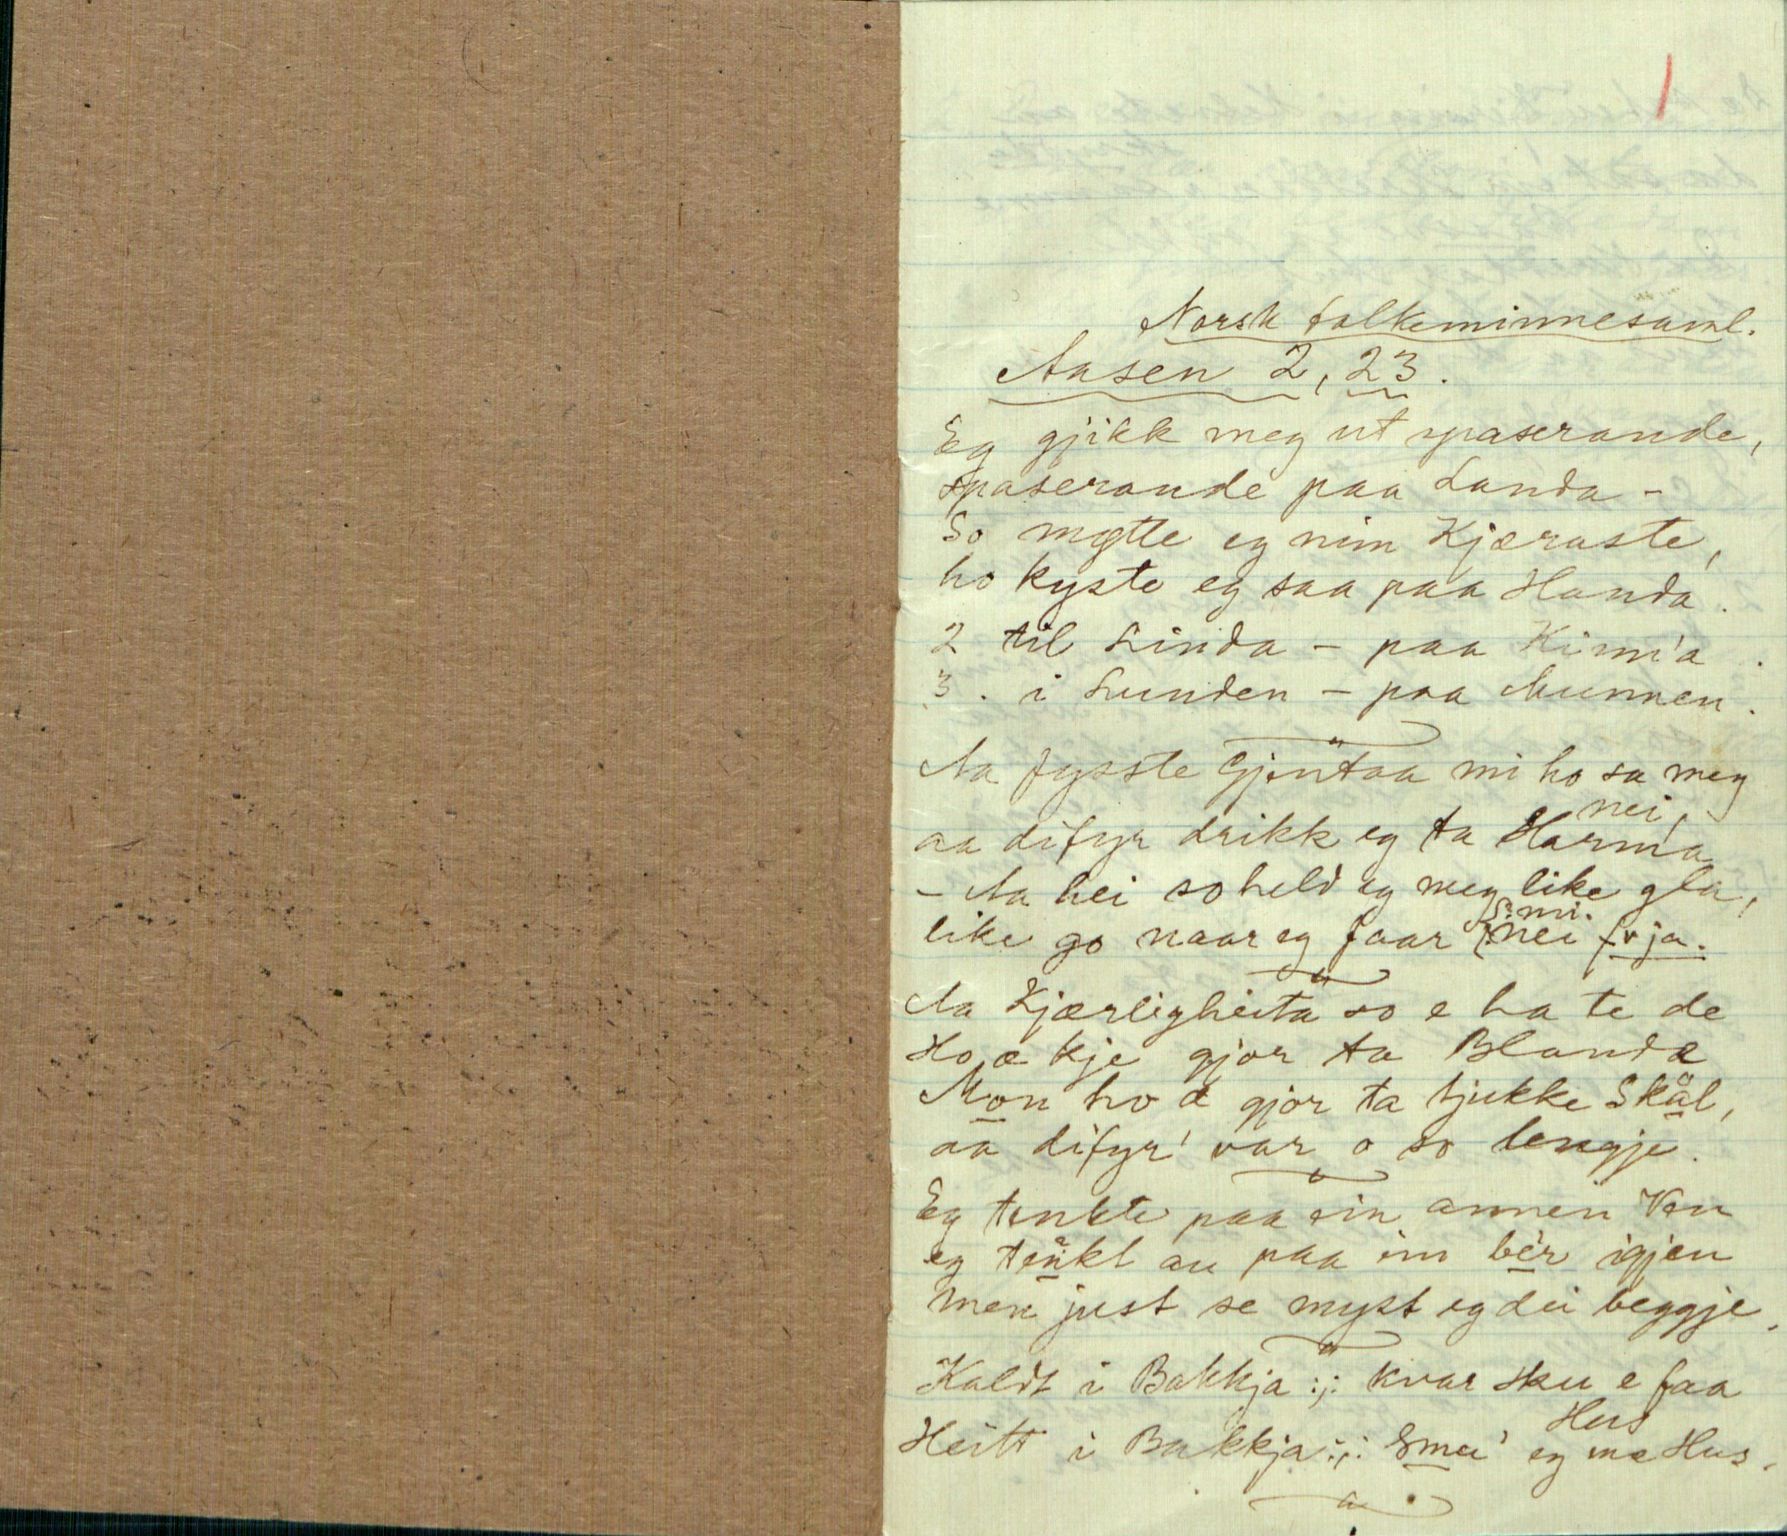 1
Norsk folkeminnesaml.
Aasen 2, 23.
Eg gjikk meg ut spaserande,
spaserande paa Landa -
So møtte eg min Kjæraste,
ho kyste eg saa paa Handa.
2 til Linda - paa Kinn'a.
3. i Lunden - paa Munnen.
Aa fysste Gjentaa mi ho sa meg
nei,
aa difyr drikk eg ta Harm'a
- Aa hei so held eg meg like gla,
like go naar eg faar nei f. ja.
Aa Kjærligheita so e ha te de
Ho æ kje gjor ta Blanda
Mon ho æ gjor ta tjukke Skål,
aa difyr' var o so lengje.
Eg tenkte paa ein annen Ven
eg tenkt au paa ein bér igjen
men just se myst eg dei beggje.
Kaldt i Bakkja :;: kvar sku e faa
Hus
Heitt i Bakkja :;: Smei' eg me Hus.